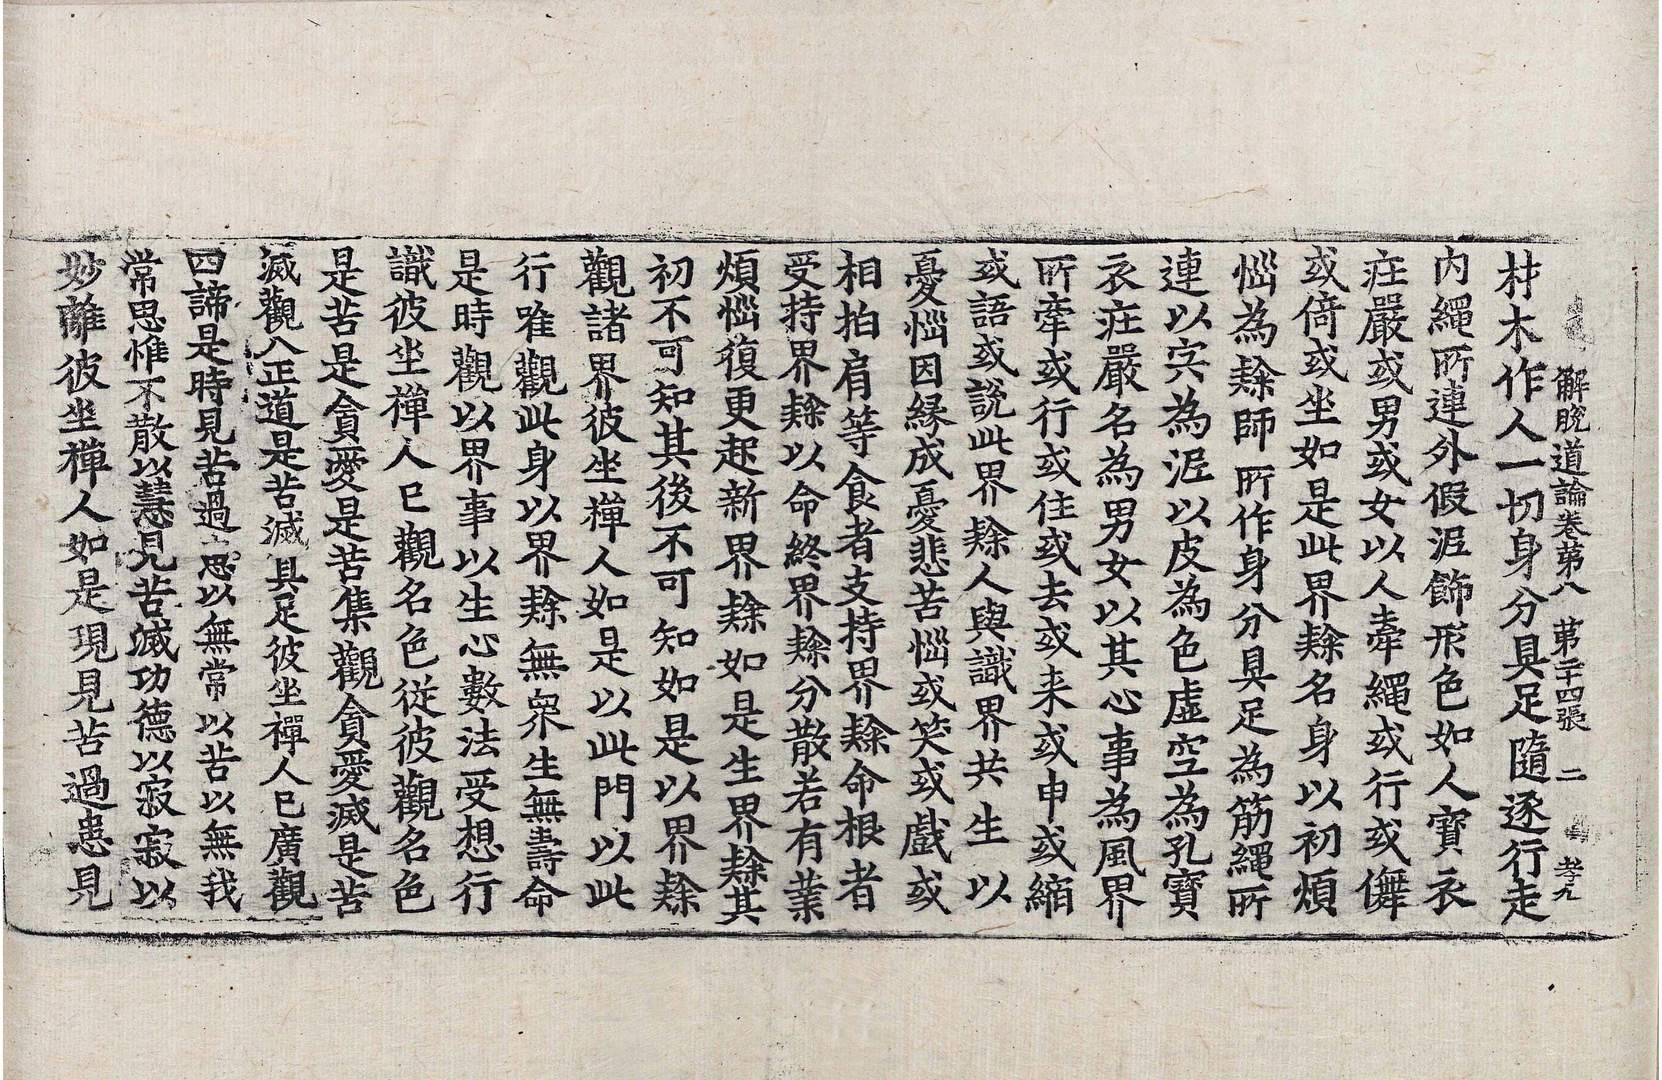 解脫道論卷第八 第二十四張 二 孝九
材木作人一切身分具足隨逐行走
内繩所連外假泥飾形色如人寶衣
莊嚴或男或女以人牽繩或行或儛
或倚或坐如是此界䅘名身以初煩
惱為䅘師所作身分具足為筋繩所
連以宍為泥以皮為色虛空為孔寶
衣莊嚴名為男女以其心事為風界
所牽或行或住或去或来或申或縮
或語或說此界䅘人與識界共生以
憂惱因縁成憂悲苦惱或笑或戲或
相拍肩等食者支持界䅘命根者
受持界䅘以命終界䅘分散若有業
煩惱復更起新界䅘如是生界䅘其
初不可知其後不可知如是以界䅘
觀諸界彼坐禪人如是以此門以此
行唯觀此身以界䅘無衆生無壽命
是時觀以界事以生心數法受想行
識彼坐禪人已觀名色從彼觀名色
是苦是貪愛是苦集觀貪愛滅是苦
滅觀八正道是苦滅具足彼坐禪人已廣觀
四諦是時見苦過患以無常以苦以無我
常思惟不散以慧見苦滅功德以寂寂以
妙離彼坐禪人如是現見苦過患見